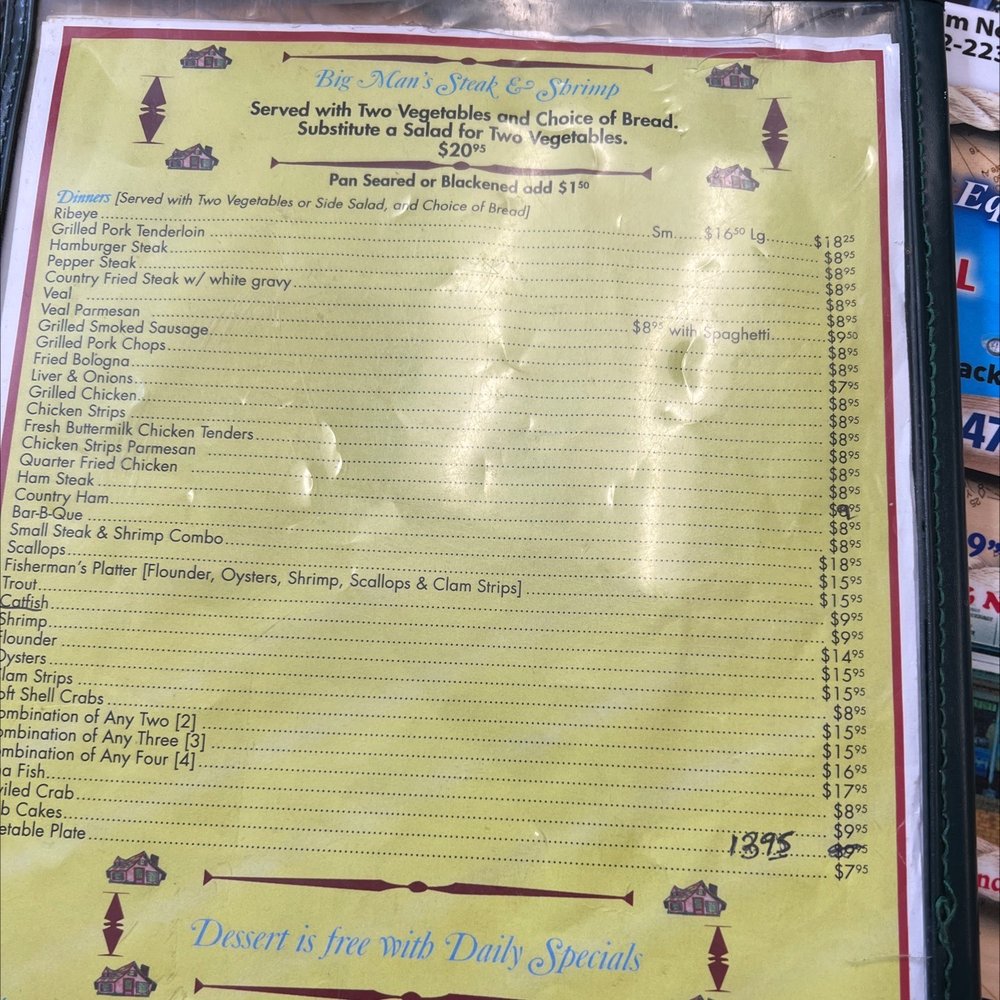 Big Man's Steak & Shrimp
Served with Two Vegetables and Choice of Bread.
Substitute a Salad for Two Vegetables.
$20⁹⁵
Pan Seared or Blackened add $1⁵⁰
Dinners [Served with Two Vegetables or Side Salad, and Choice of Bread]
Ribeye Sm. $16⁵⁰ Lg. $18²⁵
Grilled Pork Tenderloin $8⁹⁵
Hamburger Steak $8⁹⁵
Pepper Steak $8⁹⁵
Country Fried Steak w/ white gravy $8⁹⁵
Veal $8⁹⁵
Veal Parmesan $8⁹⁵ with Spaghetti $9⁵⁰
Grilled Smoked Sausage $8⁹⁵
Grilled Pork Chops $8⁹⁵
Fried Bologna $7⁹⁵
Liver & Onions $8⁹⁵
Grilled Chicken $8⁹⁵
Chicken Strips $8⁹⁵
Fresh Buttermilk Chicken Tenders $8⁹⁵
Chicken Strips Parmesan $8⁹⁵
Quarter Fried Chicken $8⁹⁵
Ham Steak $9⁹⁵
Country Ham $8⁹⁵
Bar-B-Que $8⁹⁵
Small Steak & Shrimp Combo $18⁹⁵
Scallops $15⁹⁵
Fisherman's Platter [Flounder, Oysters, Shrimp, Scallops & Clam Strips] $15⁹⁵
Trout $9⁹⁵
Catfish $9⁹⁵
Shrimp $14⁹⁵
lounder $15⁹⁵
ysters $15⁹⁵
lam Strips $8⁹⁵
oft Shell Crabs $15⁹⁵
ombination of Any Two [2] $15⁹⁵
ombination of Any Three [3] $16⁹⁵
mbination of Any Four [4] $17⁹⁵
a Fish $8⁹⁵
iled Crab $9⁹⁵
b Cakes 1395
etable Plate $7⁹⁵
Dessert is free with Daily Specials
2-223
L
ack
47
9"